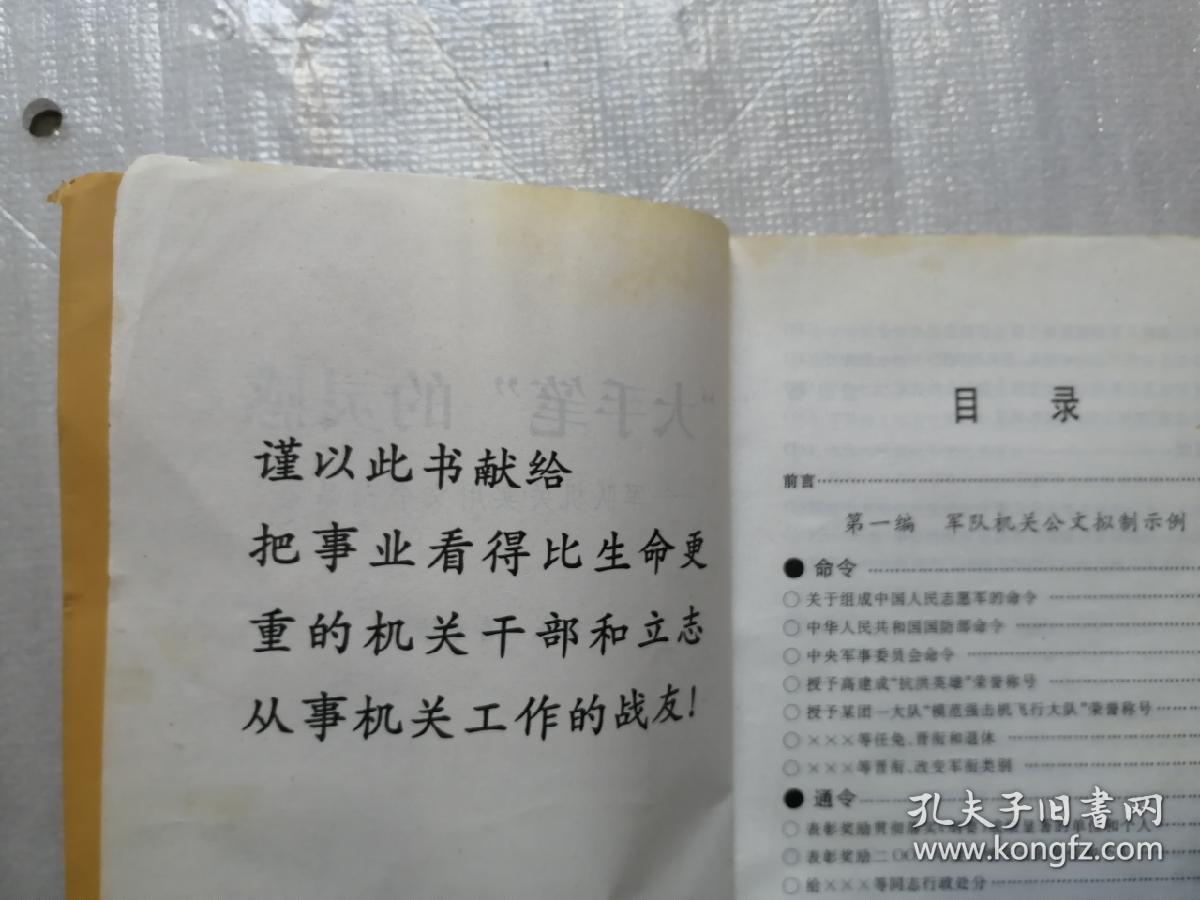 谨以此书献给
把事业看得比生命更
重的机关干部和立志
从事机关工作的战友!
“大手笔”的灵感
目 录
前言
第一编 军队机关公文拟制示例
●命令
○关于组成中国人民志愿军的命令
○中华人民共和国国防部命令
○中央军事委员会命令
○授予高建成“抗洪英雄”荣誉称号
○授予某团一大队“模范强击机飞行大队”荣誉称号
○×××等任免、晋衔和退休
○×××等晋衔、改变军衔类别
●通令
○表彰奖励贯彻落实 显著的单位和个人
○表彰奖励二〇〇
○给×××等同志行政处分
孔夫子旧书网
www.kongfz.com